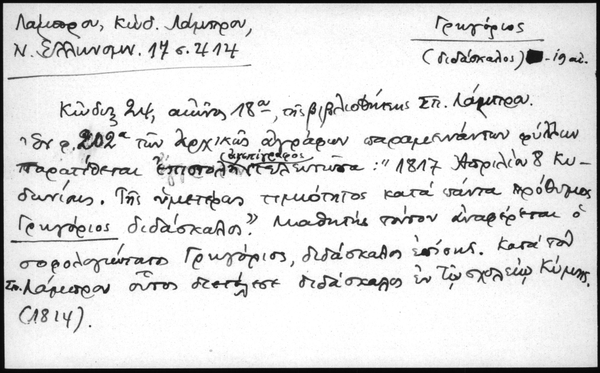 Λάμπρου, Κώδ. Λάμπρου,
Ν. Ελληνομν. 17 σ. 414
Γρηγόριος
(διδάσκαλος) -19 αἰ.
Κώδιξ 24, αἰῶνος 18ου, τῆς βιβλιοθήκης Σπ. Λάμπρου.
202α τῶν ἀρχικῶς ἀγράφων παραμεινάντων φύλλων
παρατίθεται ἐπιστολὴ (ἀνεπίγραφος) τελευτῶσα: "1817 Ἀπριλίου 8 Κυ-
δωνίαις. Τῆς ὑμετέρας τιμιότητος κατὰ πάντα πρόθυμος
Γρηγόριος διδάσκαλος". Μαθητὴς τούτου ἀναφέρεται ὁ
σοφολογιώτατος Γρηγόριος, διδάσκαλος ἐπίσης. Κατὰ τὸν
Σπ. Λάμπρον οὗτος διετέλεσε διδάσκαλος ἐν τῷ σχολείῳ Κύμης.
(1814).